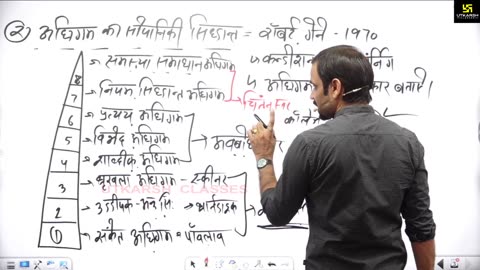 ② अधिगम का सोपानिकी सिद्धान्त = रॉबर्ट गेने - 1970
8 समस्या समाधान अधिगम
7 नियम सिद्धान्त अधिगम
चिंतन स्तर
6 प्रत्यय अधिगम
5 विभेद अधिगम
4 शाब्दिक अधिगम
3 श्रृंखला अधिगम - स्कीनर
2 उद्दीपक-
① संकेत अधिगम = पॉवलाव
अधिगम
बताये।
UTKARSH CLASSES
UTKARSH